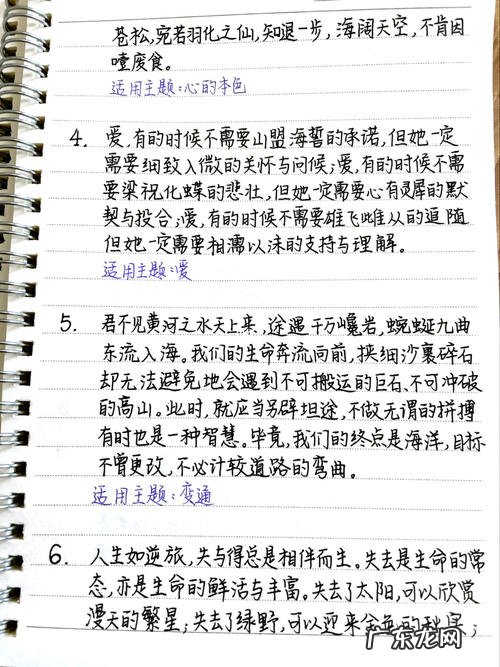 苍松,宛若羽化之仙,知退一步,海阔天空,不肯因
噎废食。
适用主题:心的本色
4. 爱,有的时候不需要山盟海誓的承诺,但她一定
需要细致入微的关怀与问候;爱,有的时候不需
要梁祝化蝶的悲壮,但她一定需要心有灵犀的默
契与投合;爱,有的时候不需要雄飞雌从的追随
但她一定需要相濡以沫的支持与理解。
适用主题:爱
5. 君不见黄河之水天上来,途遇千万巉岩,蜿蜒九曲
东流入海。我们的生命奔流向前,挟细沙裹碎石
却无法避免地会遇到不可搬运的巨石、不可冲破
的高山。此时,就应当另辟坦途,不做无谓的拼搏
有时也是一种智慧。毕竟,我们的终点是海洋,目标
不曾更改,不必计较道路的弯曲。
适用主题:变通
6. 人生如逆旅,失与得总是相伴而生。失去是生命的常
态,亦是生命的鲜活与丰富。失去了太阳,可以欣赏
漫天的繁星;失去了绿野,可以迎来金色的秋
广东龙网